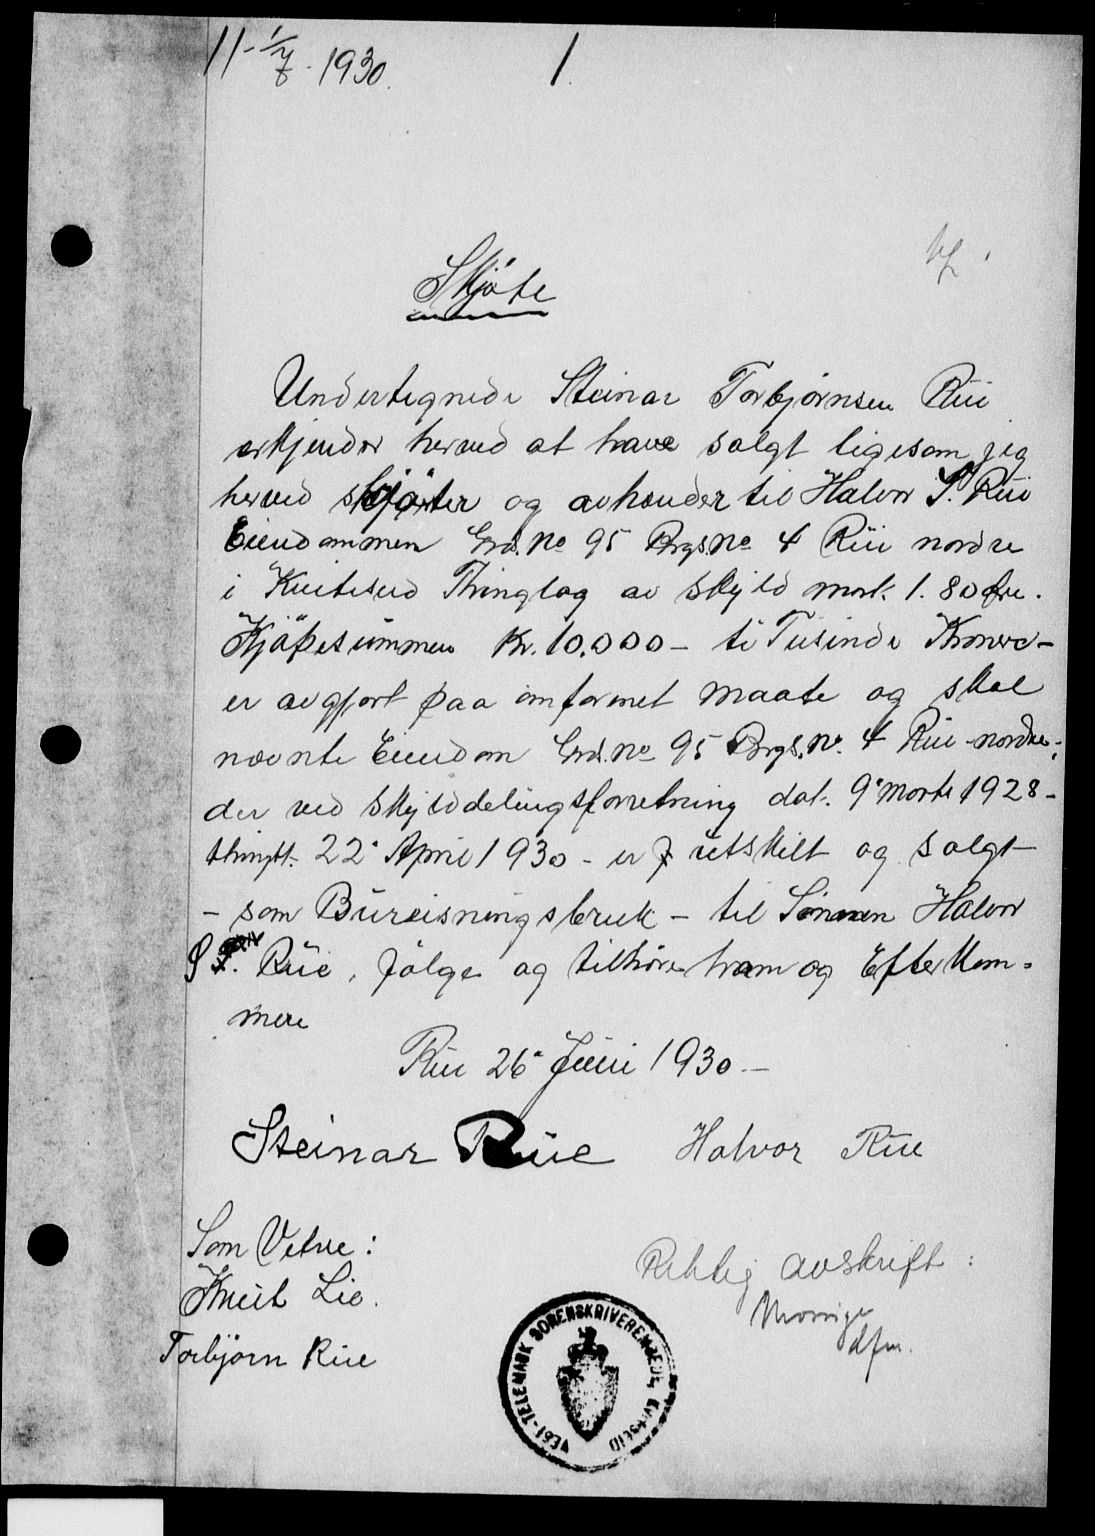 11 - 1/7 - 1930.
1.
Skjöte
Undertegnede Steinar Torbjørnsen Rui
erkjender herved at have solgt ligesom jeg
herved skjøter og avhænder til Halvor S. Rui
Eiendommen Grd. No 95 Brgs. No 4 Rui nordre
i Kviteseid Thinglag av Skyld mark 1.80 Øre.
Kjöpesummen Kr. 10.000 - ti Tusinde Kroner -
er avgjort paa omforenet Maate og skal
nævnte Eiendom Grd. no 95 Brgs. No. 4 Rui nordre -
der ved Skylddelingsforretning dat. 9' Marts 1928 -
thinglt. 22' April 1930 - er utskilt og solgt
- som Bureisningsbruk - til Sønnen Halvor
S. Rue, følge og tilhøre ham og Efterkom-
mere
Rui 26' Juni 1930. -
Steinar Rue Halvor Rue
Som Vitne:
Knut Lie.
Torbjørn Rue
Riktig avskrift:
dfm.
VEST-TELEMARK SORENSKRIVEREMBEDE KVITESEID